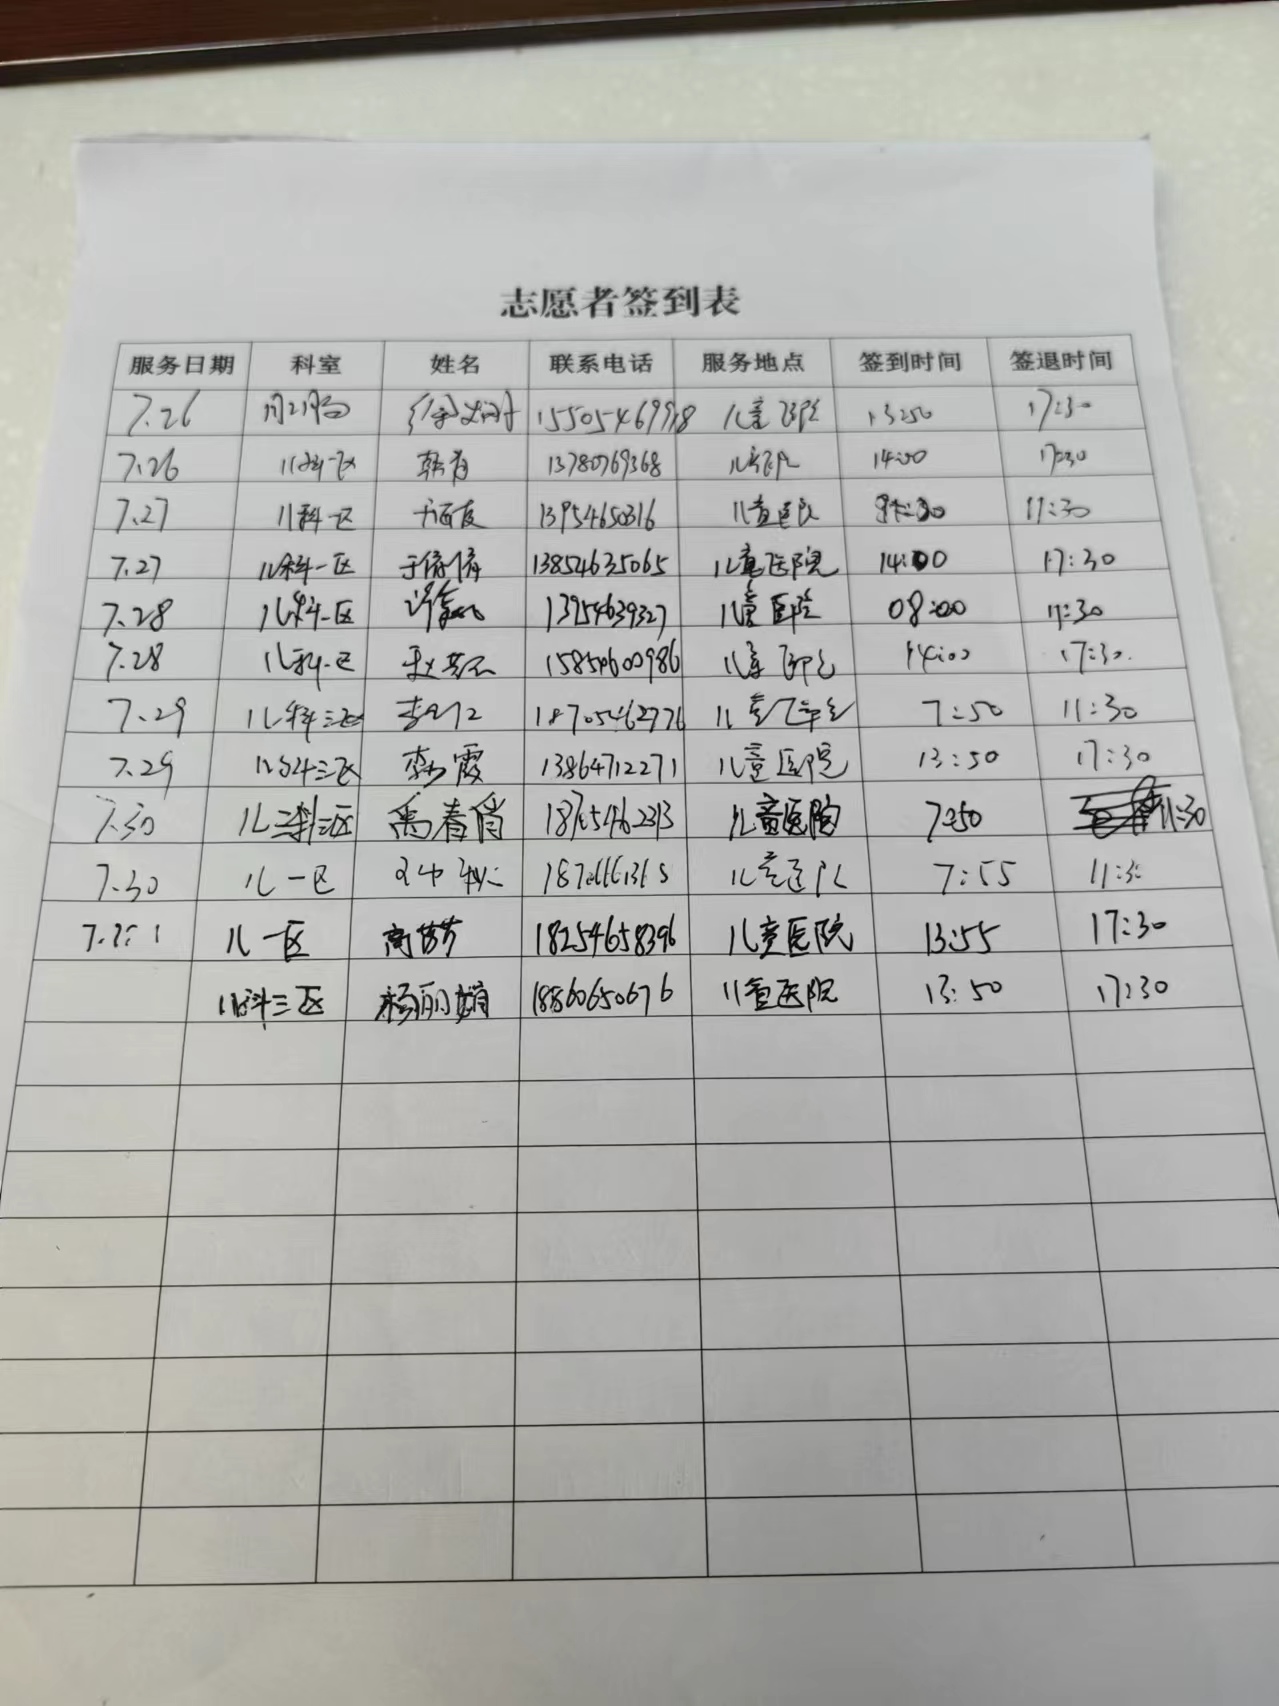 志愿者签到表
服务日期 科室 姓名 联系电话 服务地点 签到时间 签退时间
7.26 15505469998 儿童医院 13:50 17:30
7.26 儿科一区 13780769368 14:00 17:30
7.27 儿科一区 13954650316 儿童医院 11:30
7.27 儿科一区 于倩倩 13854635065 儿童医院 14:00 17:30
7.28 儿科一区 13954639327 儿童医院 08:00 11:30
7.28 儿科一区 15854600986 儿童医院 14:00 17:30
7.29 儿科三区 18705462776 儿童医院 7:50 11:30
7.29 儿科三区 霞 13864712271 儿童医院 13:50 17:30
7.30 儿 三区 禹春俏 儿童医院 7:50 11:30
7.30 儿一区 儿童医院 7:55 11:30
儿一区 高梦梦 18254658396 儿童医院 13:55 17:30
儿科三区 杨丽娟 18860650676 儿童医院 13:50 17:30